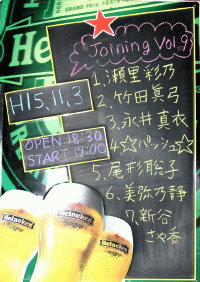 Joining Vol.9
H15.11.3
OPEN 18:30
START 19:00
1、瀬里彩乃
2、竹田真弓
3、永井真衣
4、☆パッシュ☆
5、尾形聡子
6、美弥乃静
7、新谷
さや香
Heineken
Heineken
Heineken